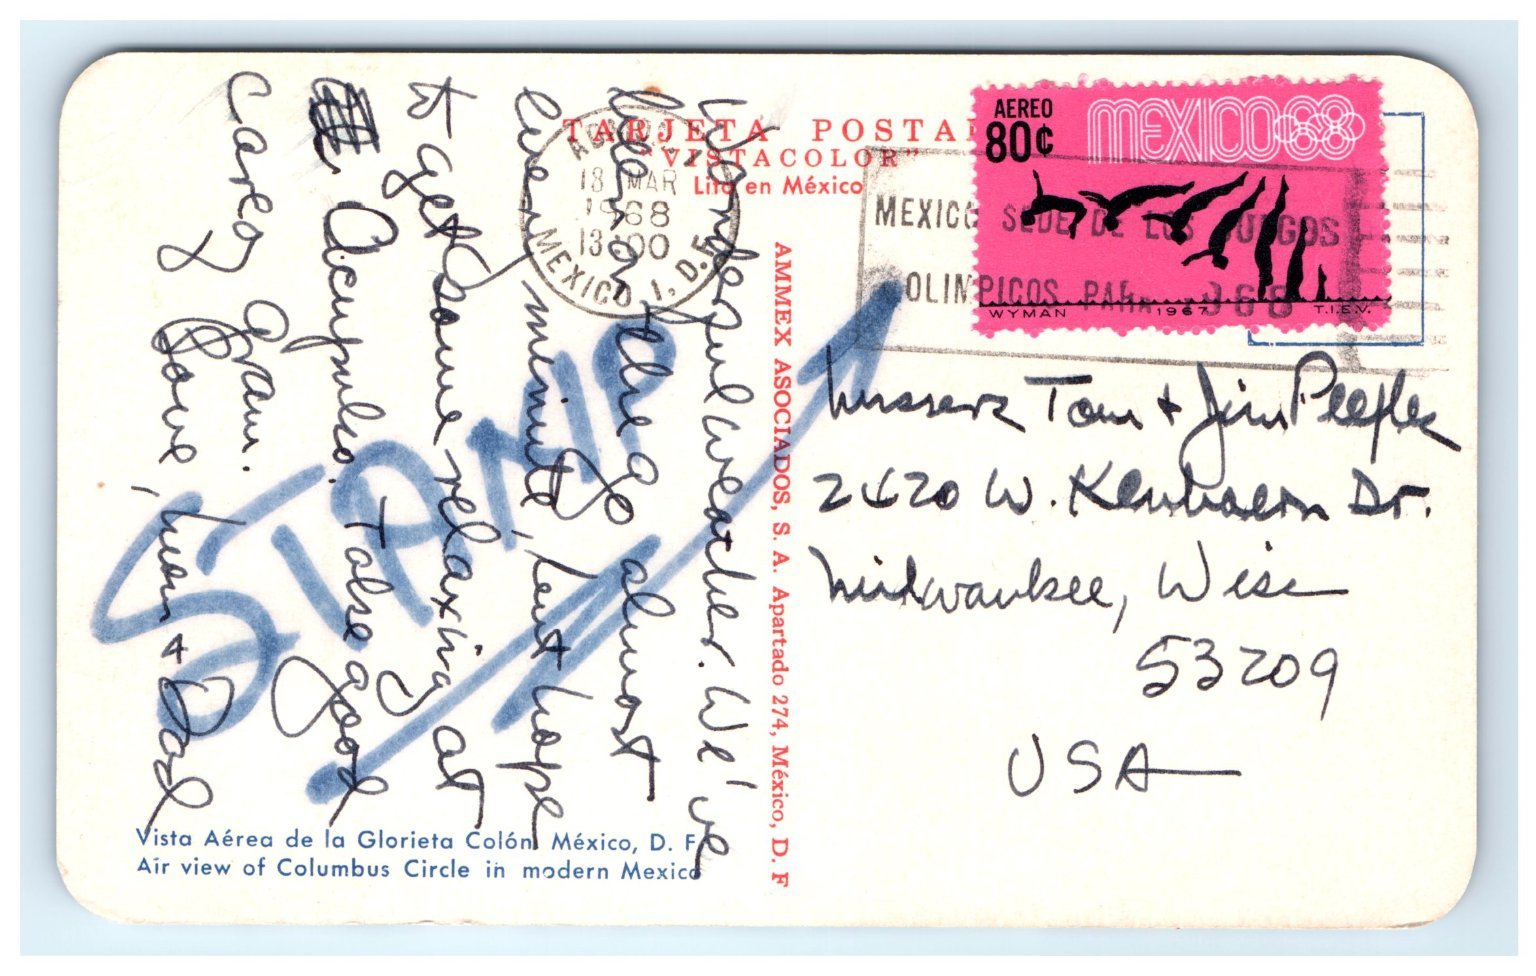 TARJETA POSTAL
"VISTACOLOR"
Lito en México
AEREO
80¢
MEXICO68
WYMAN 1967 T.I.E.V.
18 MAR
1968
13 00
MEXICO 1, D.F.
MEXICO SEDE DE LOS JUEGOS
OLIMPICOS PARA 1968
Wonderful weather. We've
been on the go almost
every minute, but hope
to get some relaxing at
Acapulco. Take good
care of Gram.
Love, Mom & Dad
STAMP
AMMEX ASOCIADOS, S. A. Apartado 274, México, D. F
Messers Tom & Jim Peeples
2620 W. Dr.
Milwaukee, Wisc
53209
USA
Vista Aérea de la Glorieta Colón, México, D. F.
Air view of Columbus Circle in modern Mexico